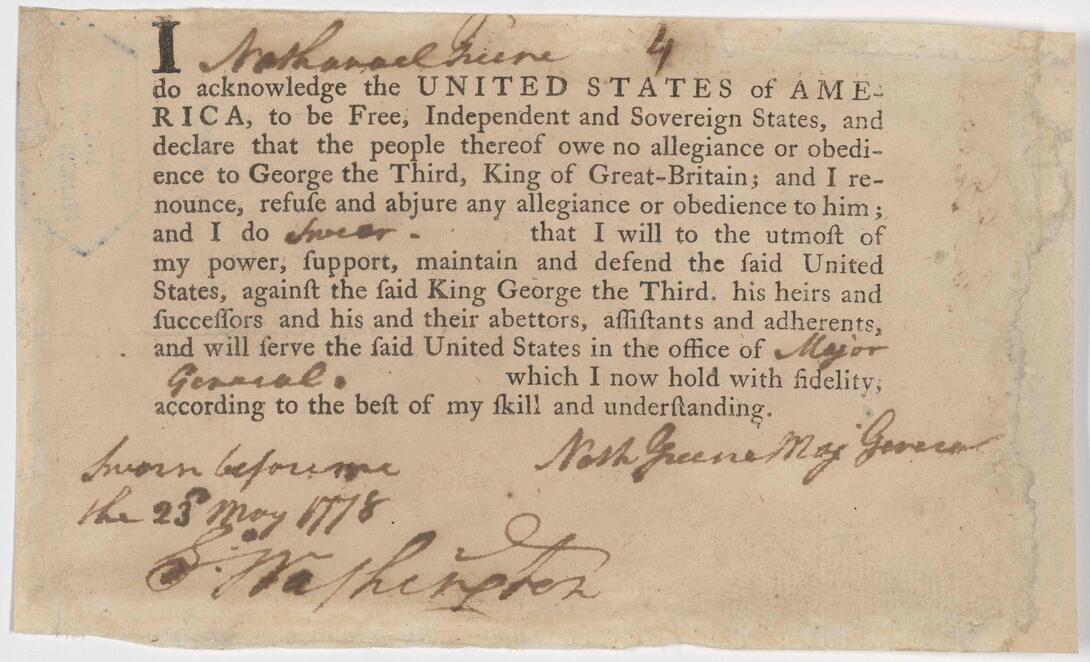 I Nathanael Greene 4
do acknowledge the UNITED STATES of AME-
RICA, to be Free, Independent and Sovereign States, and
declare that the people thereof owe no allegiance or obedi-
ence to George the Third, King of Great-Britain; and I re-
nounce, refuſe and abjure any allegiance or obedience to him;
and I do Swear - that I will to the utmoſt of
my power, ſupport, maintain and defend the ſaid United
States, againſt the ſaid King George the Third. his heirs and
ſucceſſors and his and their abettors, aſſiſtants and adherents,
and will ſerve the ſaid United States in the office of Major
General. which I now hold with fidelity,
according to the beſt of my ſkill and underſtanding.
Nath Greene Maj General
Sworn before me
the 23d May 1778
G: Washington